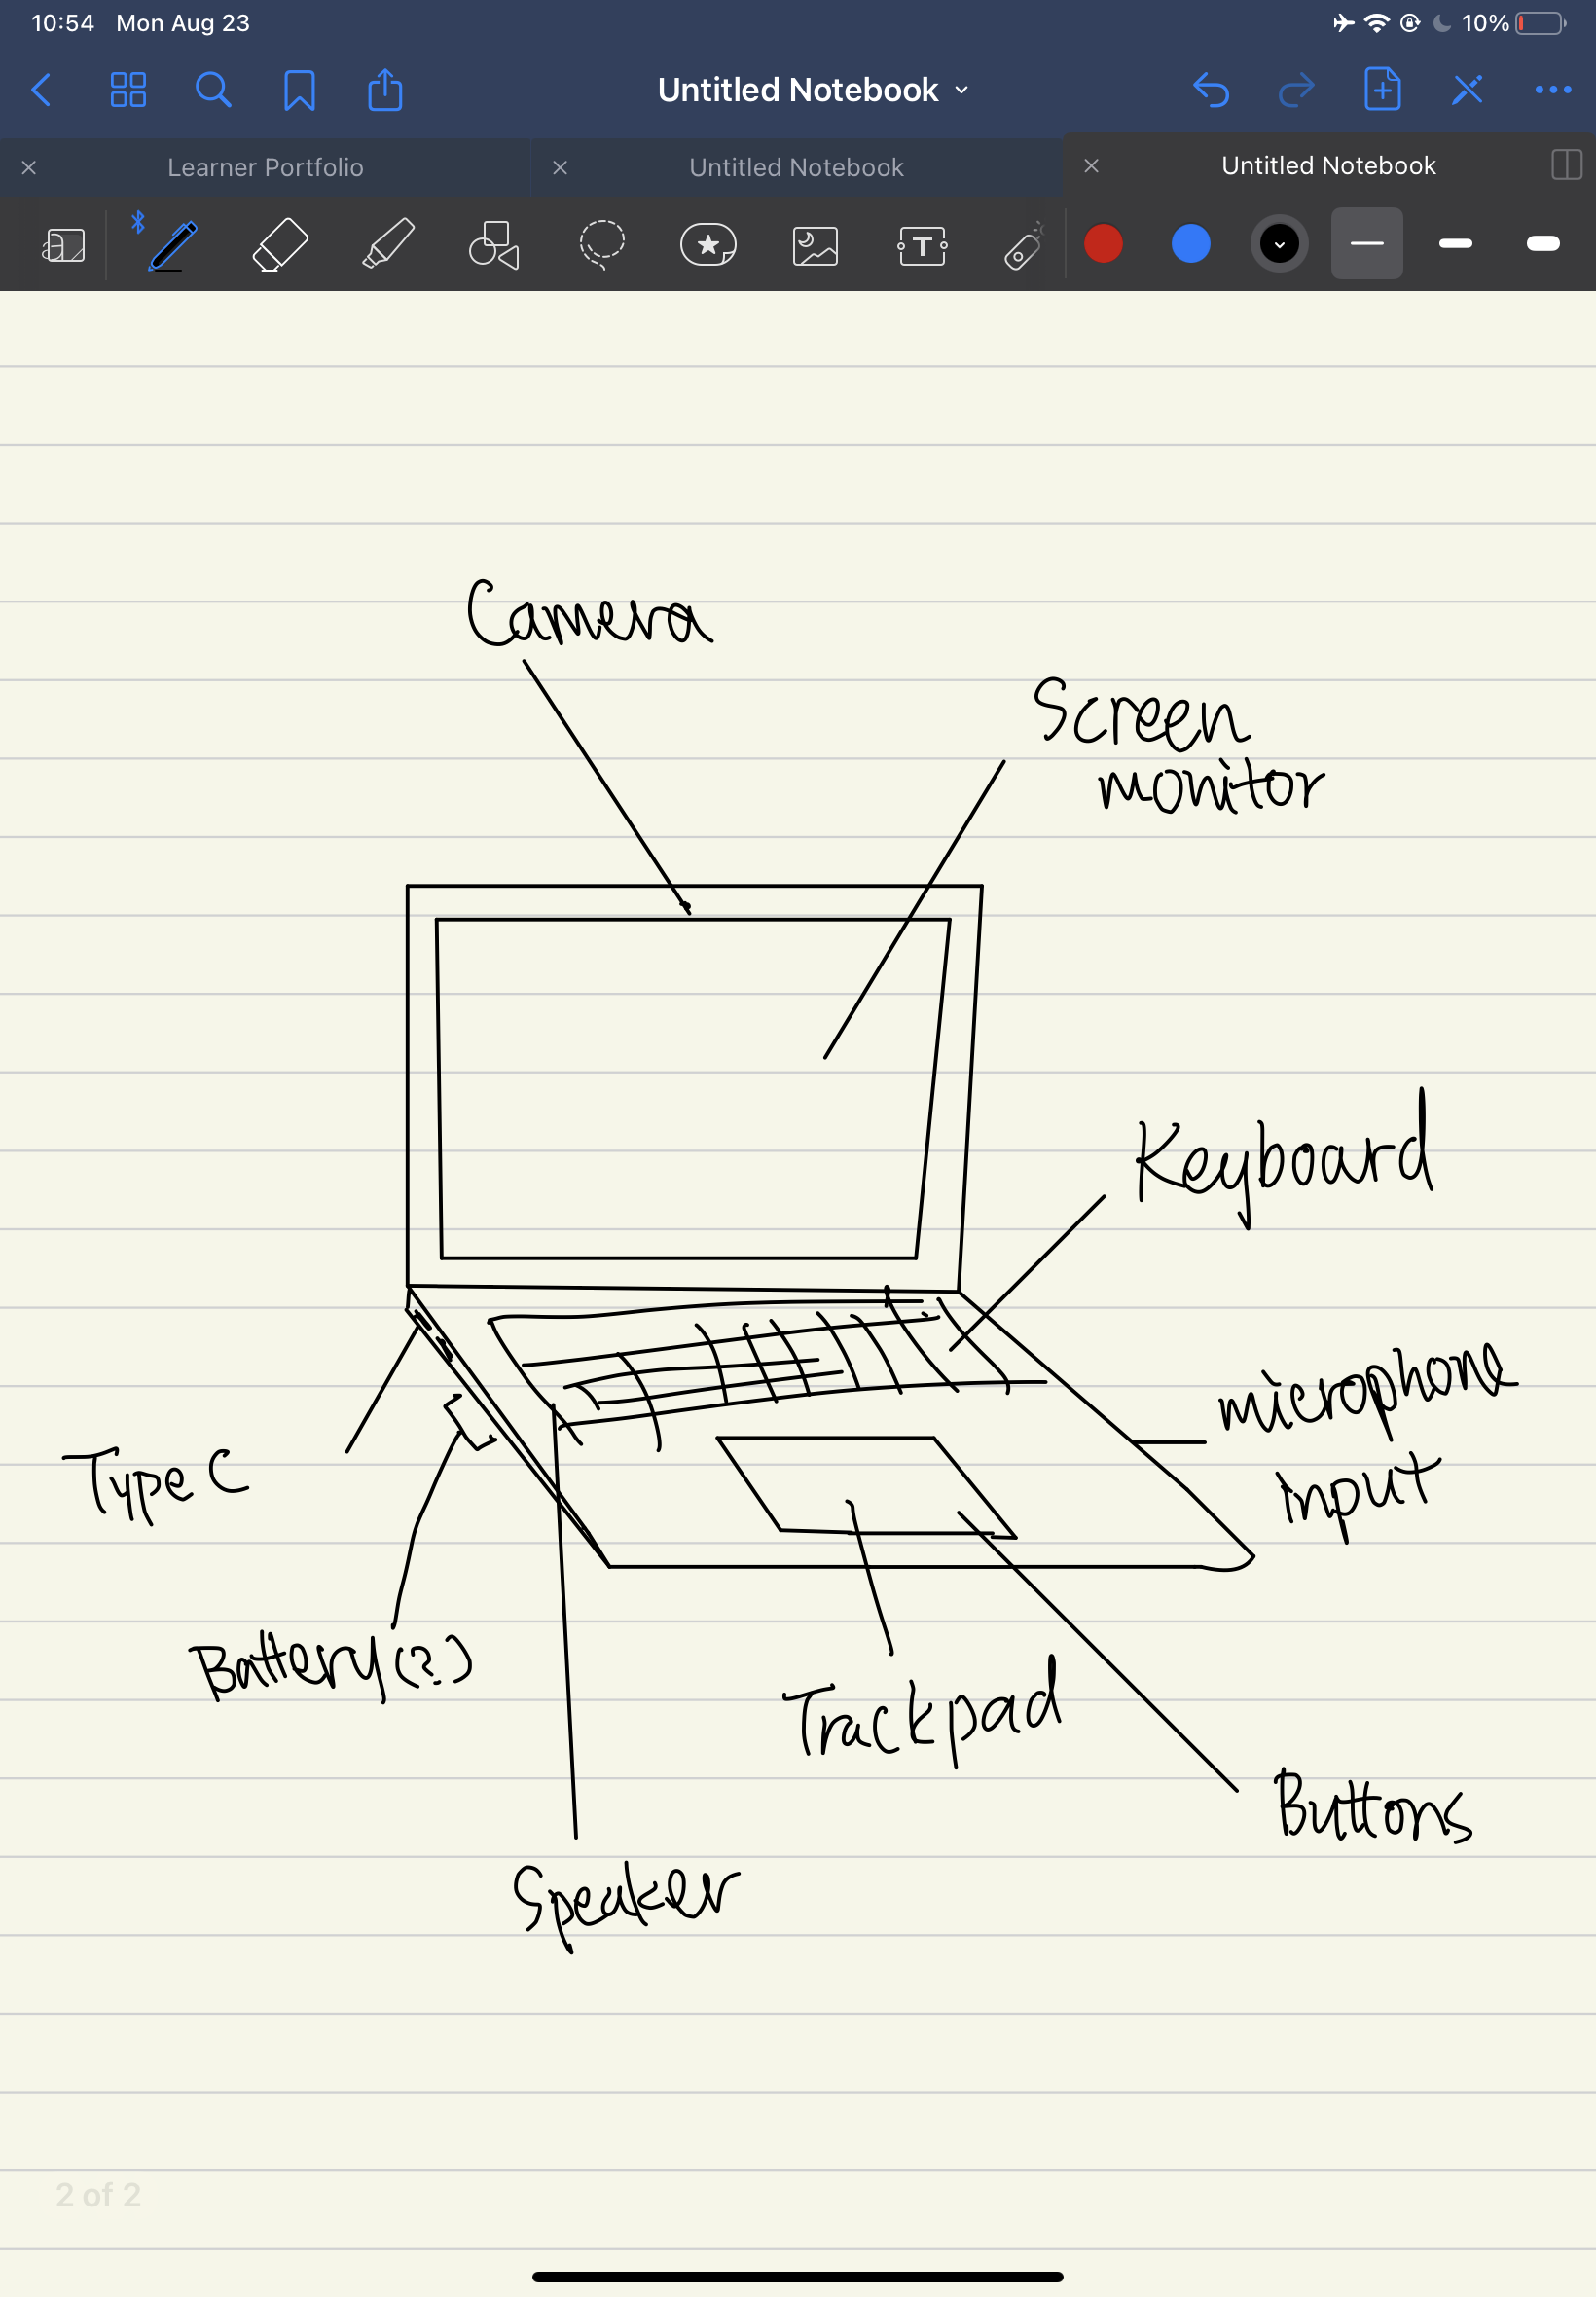 10:54 Mon Aug 23
10%
Untitled Notebook
Learner Portfolio
Untitled Notebook
Untitled Notebook
T
Camera
Screen
monitor
Keyboard
microphone
input
Type C
Battery (?)
Trackpad
Buttons
Speaker
2 of 2